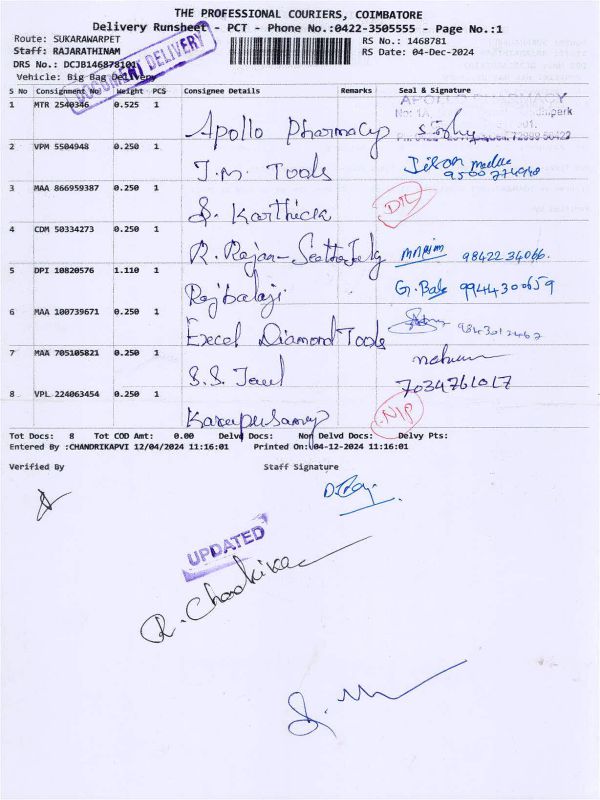 THE PROFESSIONAL COURIERS, COIMBATORE
Delivery Runsheet - PCT - Phone No.:0422-3505555 - Page No.:1
Route: SUKARAWARPET RS No.: 1468781
Staff: RAJARATHINAM RS Date: 04-Dec-2024
DRS No.: DCJB146878101
DOCUMENT DELIVERY
Vehicle: Big Bag Delivery
S No Consignment No Weight PCS Consignee Details Remarks Seal & Signature
1 MTR 2540346 0.525 1 Apollo Pharmacy
APOLLO PHARMACY
No: 1A,
2 VPM 5504948 0.250 1 J.M. Tools
3 MAA 866959387 0.250 1 S. Karthick
4 CDM 50334273 0.250 1 R. Rajan- 98422 34066.
5 DPI 10820576 1.110 1 Rajbalaji G. Bala 9944300659
6 MAA 100739671 0.250 1 Excel Diamond Tools
7 MAA 705105821 0.250 1 S.S.
7034761017
8 VPL 224063454 0.250 1 Karupusamy
Tot Docs: 8 Tot COD Amt: 0.00 Delvd Docs: Non Delvd Docs: Delvy Pts:
Entered By :CHANDRIKAPVI 12/04/2024 11:16:01 Printed On::04-12-2024 11:16:01
Verified By Staff Signature
UPDATED